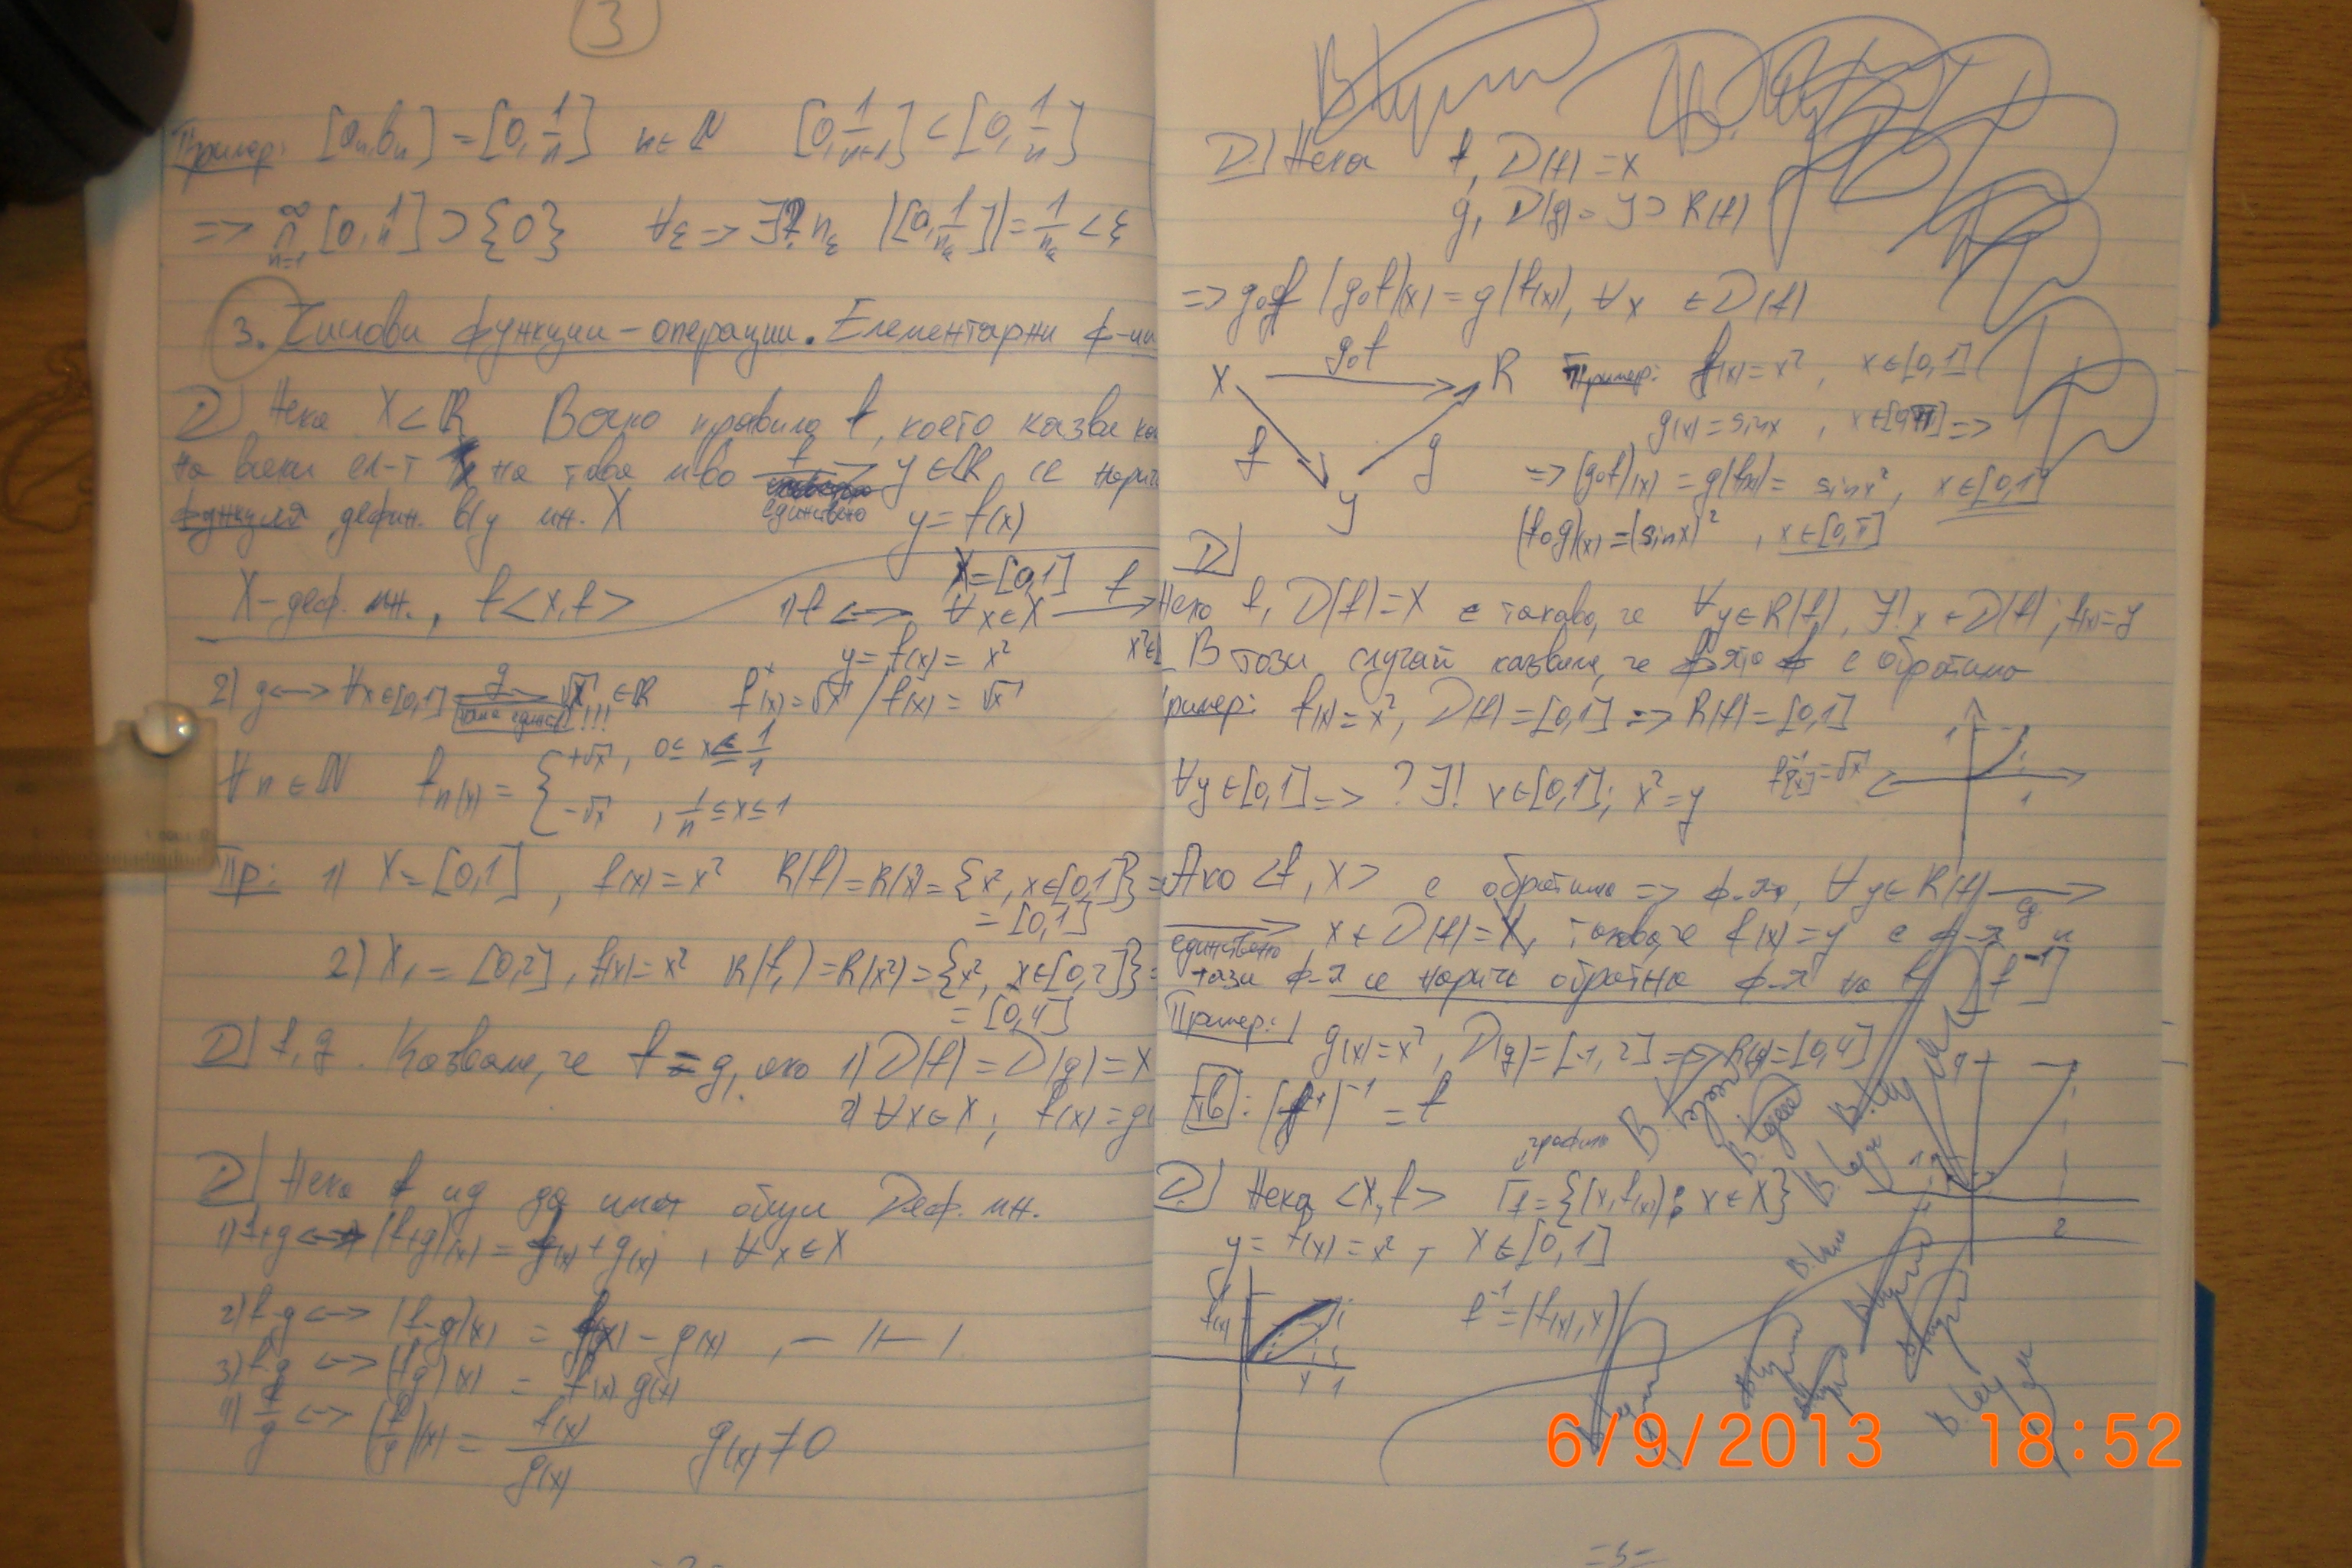 3
Пример: [aₙ, bₙ] = [0, 1/n] n∈ℕ [0, 1/(n+1)] ⊂ [0, 1/n]
=> ∞∩n=1 [0, 1/n] ⊃ {0} ∀ε => ∃ n_ε |[0, 1/n_ε]| = 1/n_ε < ε
3. Числови функции - операции. Елементарни ф-ии
D| Нека X ⊂ ℝ Всяко правило f, което казва
на всеки ел-т x на това мн-во —f→ единствено y∈ℝ се нарич
функция дефин. в/у мн. X y = f(x)
X - деф. мн., f <x, f>
X = [0,1]
1) f <-> ∀x∈X —f→
y = f(x) = x²
2) g <-> ∀x∈[0,1] —g→ √x ∈ℝ f(x) = √x / f(x) = √x
!!!
∀n∈ℕ fₙ(x) = { +√x, 0 ≤ x ≤ 1/1
-√x, 1/n ≤ x ≤ 1
Пр: 1) X = [0,1], f(x) = x² R(f) = R(x²) = {x², x∈[0,1]} =
= [0,1]
2) X₁ = [0,2], f(x) = x² R(f₁) = R(x²) = {x², x∈[0,2]} =
= [0,4]
D| f, g. Казваме, че f = g, ако 1) D(f) = D(g) = X
2) ∀x∈X; f(x) = g(
D| Нека f и g да имат общи Деф. мн.
1) f+g <-> (f+g)(x) = f(x) + g(x), ∀x∈X
2) f-g <-> (f-g)(x) = f(x) - g(x), -11-
3) f.g <-> (fg)(x) = f(x) g(x)
4) f/g <-> (f/g)(x) = f(x)/g(x) g(x) ≠ 0
D| Нека f, D(f) = X
g, D(g) = Y ⊃ R(f)
=> gof (gof)(x) = g(f(x)), ∀x ∈D(f)
X gof R
f g
Y
Пример: f(x) = x², x∈[0,1]
g(x) = sinx, x∈[0,π] =>
=> (gof)(x) = g(f(x)) = sinx², x∈[0,1]
(fog)(x) = (sinx)², x∈[0,π]
D|
Нека f, D(f) = X е такава, че ∀y∈R(f), ∃! x∈D(f); f(x) = y
В този случай казваме, че ф-ята f е обратима
ример: f(x) = x², D(f) = [0,1] => R(f) = [0,1]
∀y∈[0,1] => ? ∃! x∈[0,1]; x² = y f⁻¹(x) = √x
1
1
Ако <f, X> е обратима => ф-ята, ∀y∈R(f) →
единствено x∈D(f) = X, такова че f(x) = y е ф-я и
тази ф-я се нарича обратна ф-я на f [f⁻¹]
Пример:
g(x) = x², D(g) = [-1, 2] => R(g) = [0,4]
Тв: (f⁻¹)⁻¹ = f
графика
D| Нека <X, f> Γf = {(x, f(x)); x∈X}
y = f(x) = x², x∈[0,1]
f⁻¹ = (f(x), x)
f(x)
x 1
4
1
2
6/9/2013 18:52